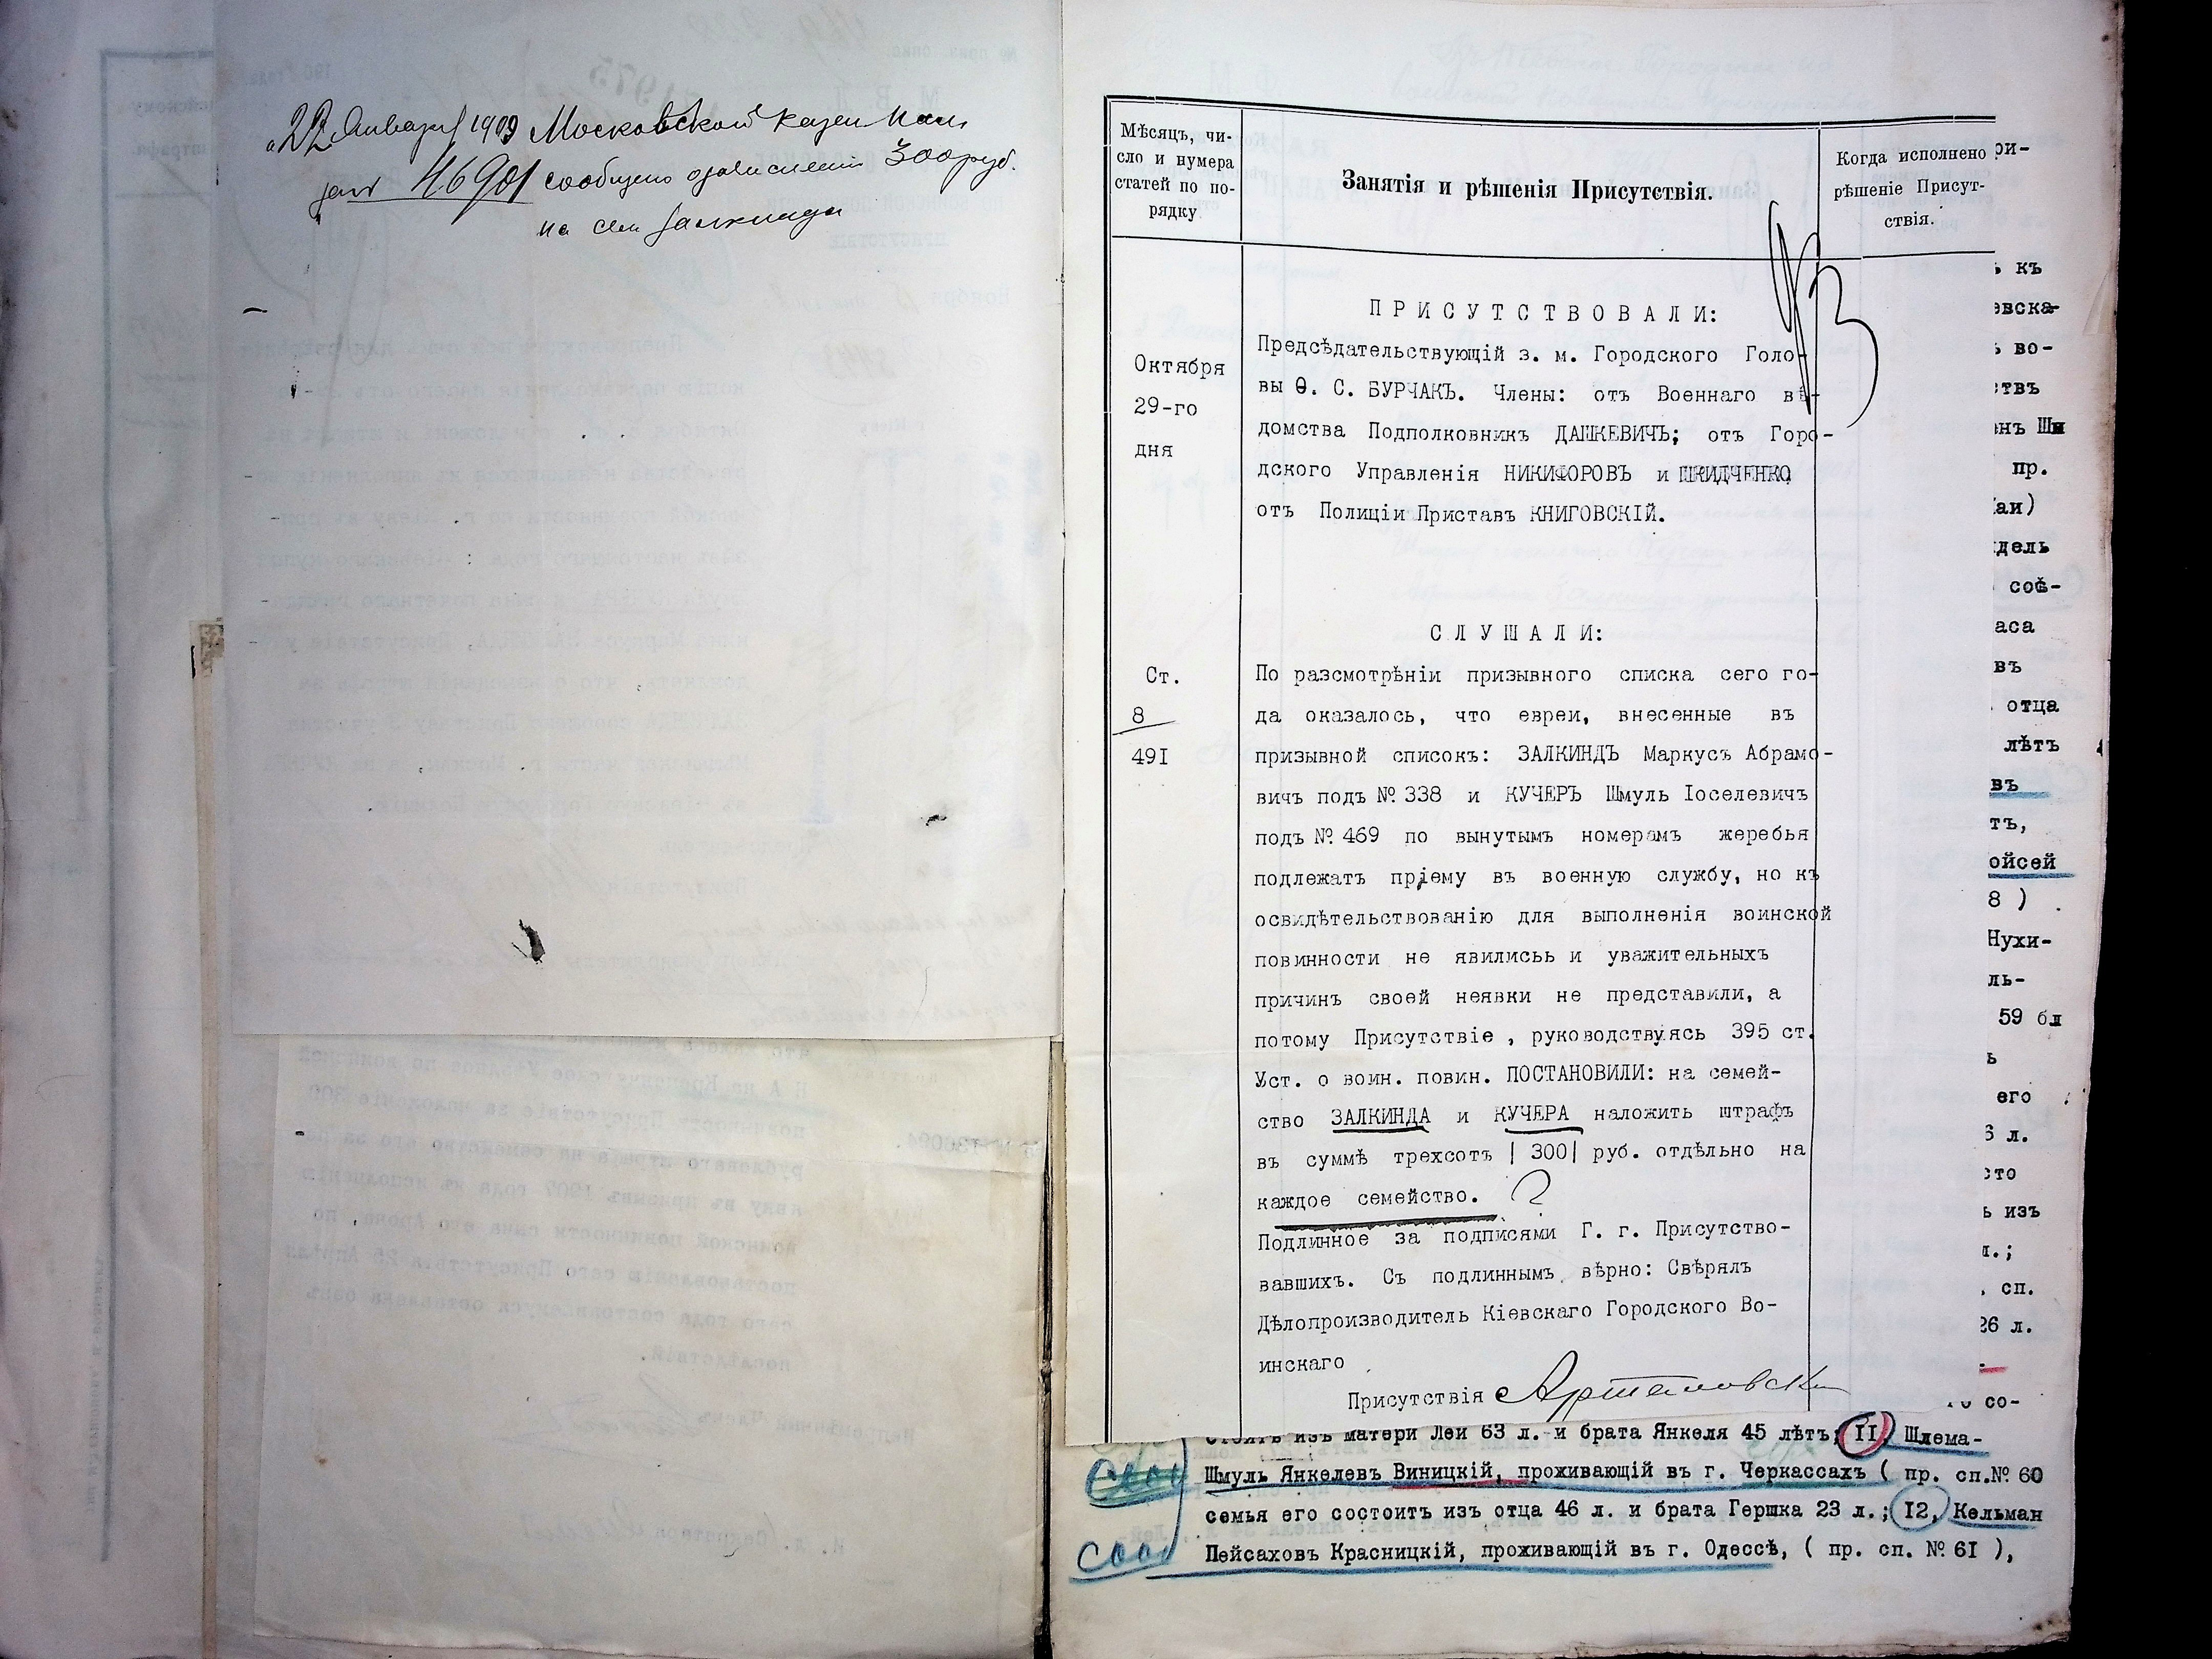 22 Января 1909 Московской казен пал
за № 46901 сообщено о зачислении 300 руб.
на сем Залкинда
Мѣсяцъ, чи-
сло и нумера
статей по по-
рядку
Занятія и рѣшенія Присутствія.
Когда исполнено
рѣшеніе Присут-
ствія.
Октября
29-го
дня
ПРИСУТСТВОВАЛИ:
Предсѣдательствующій з. м. Городского Голо-
вы Ѳ. С. БУРЧАКЪ. Члены: отъ Военнаго вѣ-
домства Подполковникъ ДАШКЕВИЧЪ; отъ Горо-
дского Управленія НИКИФОРОВЪ и ШКИДЧЕНКО
отъ Полиціи Приставъ КНИГОВСКІЙ.
СЛУШАЛИ:
Ст.
8
49I
По разсмотрѣніи призывного списка сего го-
да оказалось, что евреи, внесенные въ
призывной списокъ: ЗАЛКИНДЪ Маркусъ Абрамо-
вичъ подъ № 338 и КУЧЕРЪ Шмуль Іоселевичъ
подъ № 469 по вынутымъ номерамъ жеребья
подлежатъ пріему въ военную службу, но къ
освидѣтельствованію для выполненія воинской
повинности не явилисьь и уважительныхъ
причинъ своей неявки не представили, а
потому Присутствіе, руководствуясь 395 ст.
Уст. о воин. повин. ПОСТАНОВИЛИ: на семей-
ство ЗАЛКИНДА и КУЧЕРА наложить штрафъ
въ суммѣ трехсотъ | 300 | руб. отдѣльно на
каждое семейство.
Подлинное за подписями Г. г. Присутство-
вавшихъ. Съ подлиннымъ вѣрно: Свѣрялъ
Дѣлопроизводитель Кіевскаго Городского Во-
инскаго
Присутствія
ри-
къ
евска-
во-
ствъ
пр.
аи)
дель
соѣ-
аса
въ
отца
лѣтъ
въ
тъ,
ойсей
8 )
Нухи-
ль-
59 бл
ь
его
6 л.
сто
ь изъ
л.;
сп.
26 л.
со-
стоитъ изъ матери Леи 63 л. и брата Янкеля 45 лѣтъ; II, Шлема-
Шмуль Янкелевъ Виницкій, проживающій въ г. Черкассахъ ( пр. сп.№ 60
семья его состоитъ изъ отца 46 л. и брата Гершка 23 л.; I2, Кельман
Пейсаховъ Красницкій, проживающій въ г. Одессѣ, ( пр. сп. № 6I ),